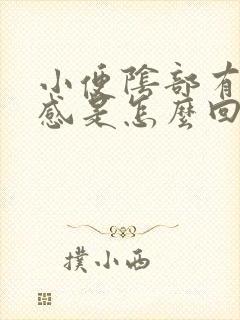 小便陰部有
感是怎麼回
撲小西